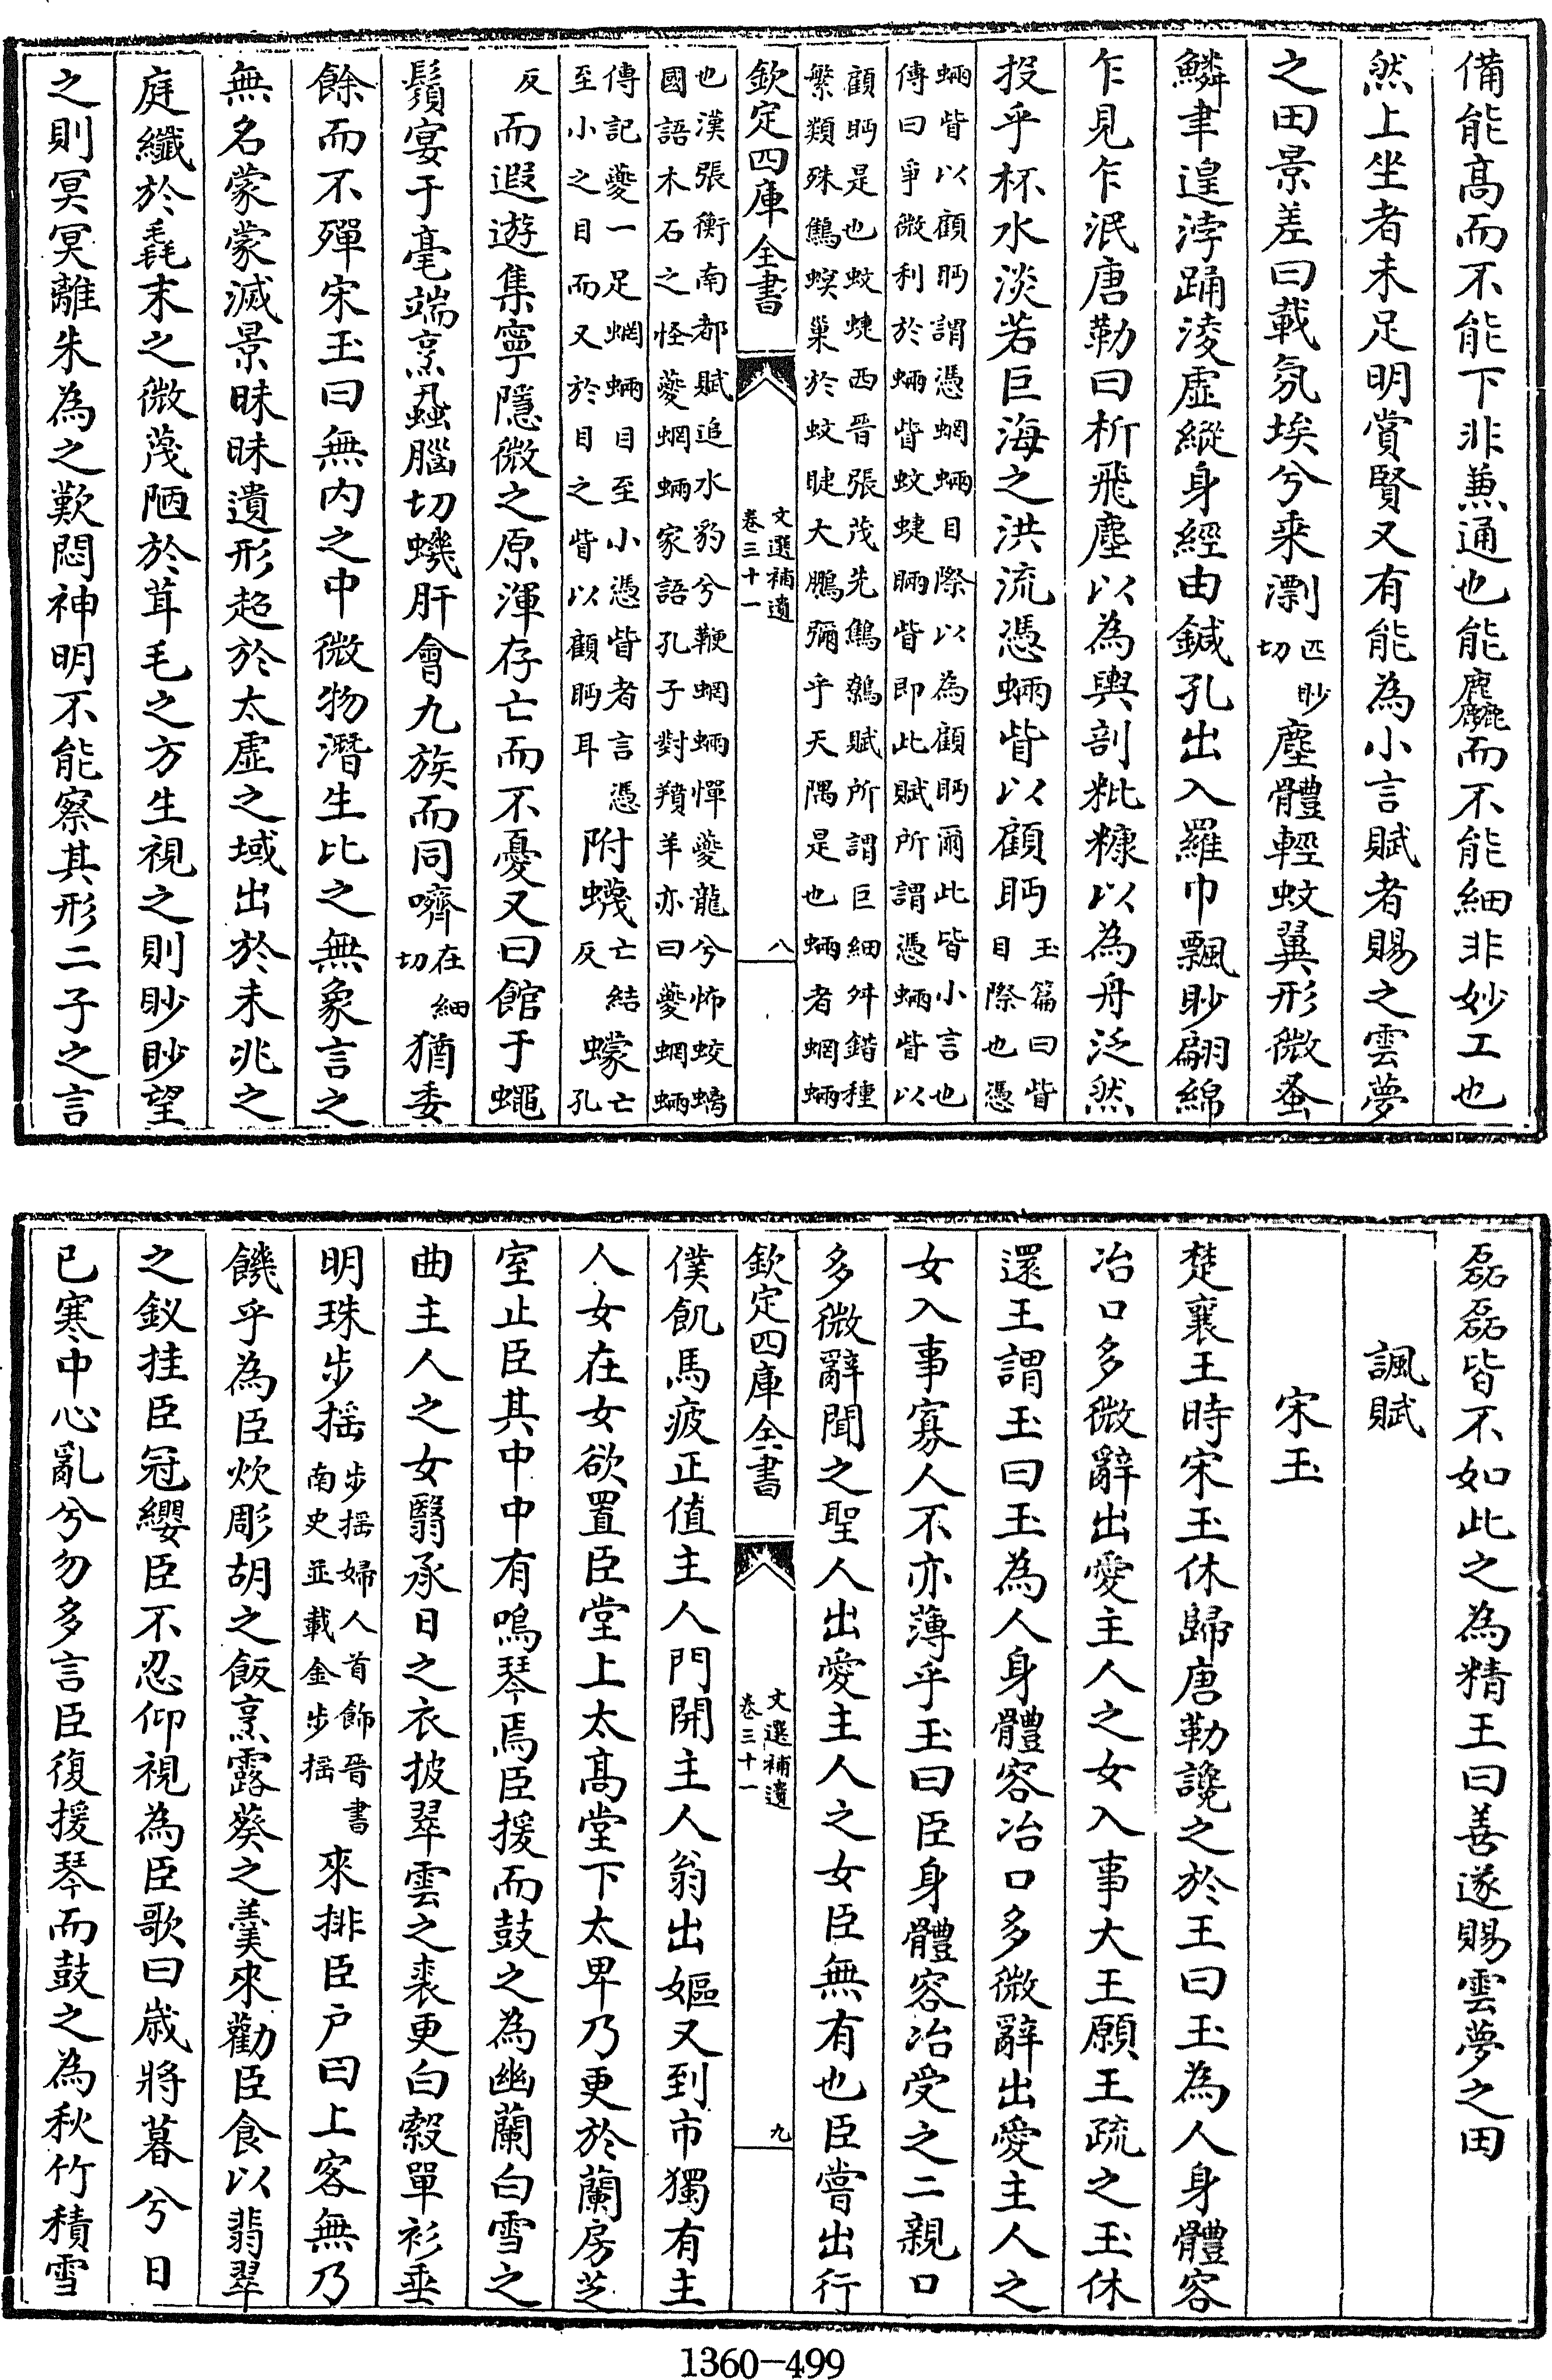 備能髙而不能下非兼通也能麤而不能細非妙工也
然上坐者未足明賞賢又有能為小言賦者賜之雲夢
之田景差曰載氛埃兮乘漂匹眇切塵體輕蚊翼形微蚤
鱗聿遑浡踊淩虛縱身經由鍼孔出入羅巾飄眇翩綿
乍見乍泯唐勒曰析飛塵以為輿剖粃糠以為舟泛然
投乎杯水淡若巨海之洪流憑蜹眥以顧眄玉篇曰眥目際也憑
蜹眥以顧眄謂憑蜩蜹目際以為顧眄爾此皆小言也
傳曰爭微利於蜹眥蚊蜨睊眥即此賦所謂憑蜹眥以
顧眄是也蚊蜨西晉張茂先鷦鷯賦所謂巨細舛錯種
繁類殊鷦螟巢於蚊睫大鵬彌乎天隅是也蜹者蜩蜹
欽定四庫全書
文選補遺
卷三十一
八
也漢張衡南都賦追水豹兮鞭蜩蜹憚夔龍兮怖蛟螭
國語木石之怪夔蜩蜹家語孔子對羵羊亦曰夔蜩蜹
傳記夔一足蜩蜹目至小憑眥者言憑
至小之目而又於目之眥以顧眄耳附蠛亡結反蠓亡孔
反而遐遊集寧隱微之原渾存亡而不憂又曰館于蠅
鬚宴于毫端烹蝨腦切蟣肝會九族而同嚌在細切猶委
餘而不殫宋玉曰無内之中微物潛生比之無象言之
無名蒙蒙滅景昧昧遺形超於太虛之域出於未兆之
庭纖於毳末之微蔑陋於茸毛之方生視之則眇眇望
之則冥冥離朱為之歎悶神明不能察其形二子之言
磊磊皆不如此之為精王曰善遂賜雲夢之田
諷賦
宋玉
楚襄王時宋玉休歸唐勒讒之於王曰玉為人身體容
冶口多微辭出愛主人之女入事大王願王疏之玉休
還王謂玉曰玉為人身體容冶口多微辭出愛主人之
女入事寡人不亦薄乎玉曰臣身體容冶受之二親口
多微辭聞之聖人出愛主人之女臣無有也臣嘗出行
欽定四庫全書
文選補遺
卷三十一
九
僕飢馬疲正值主人門開主人翁出嫗又到市獨有主
人女在女欲置臣堂上太髙堂下太卑乃更於蘭房芝
室止臣其中中有鳴琴焉臣援而鼓之為幽蘭白雪之
曲主人之女翳承日之衣披翠雲之裘更白縠單衫垂
明珠步摇步摇婦人首飾晉書南史並載金步摇來排臣户曰上客無乃
饑乎為臣炊彫胡之飯烹露葵之羹來勸臣食以翡翠
之釵挂臣冠纓臣不忍仰視為臣歌曰歲將暮兮日
已寒中心亂兮勿多言臣復援琴而鼓之為秋竹積雪
1360-499